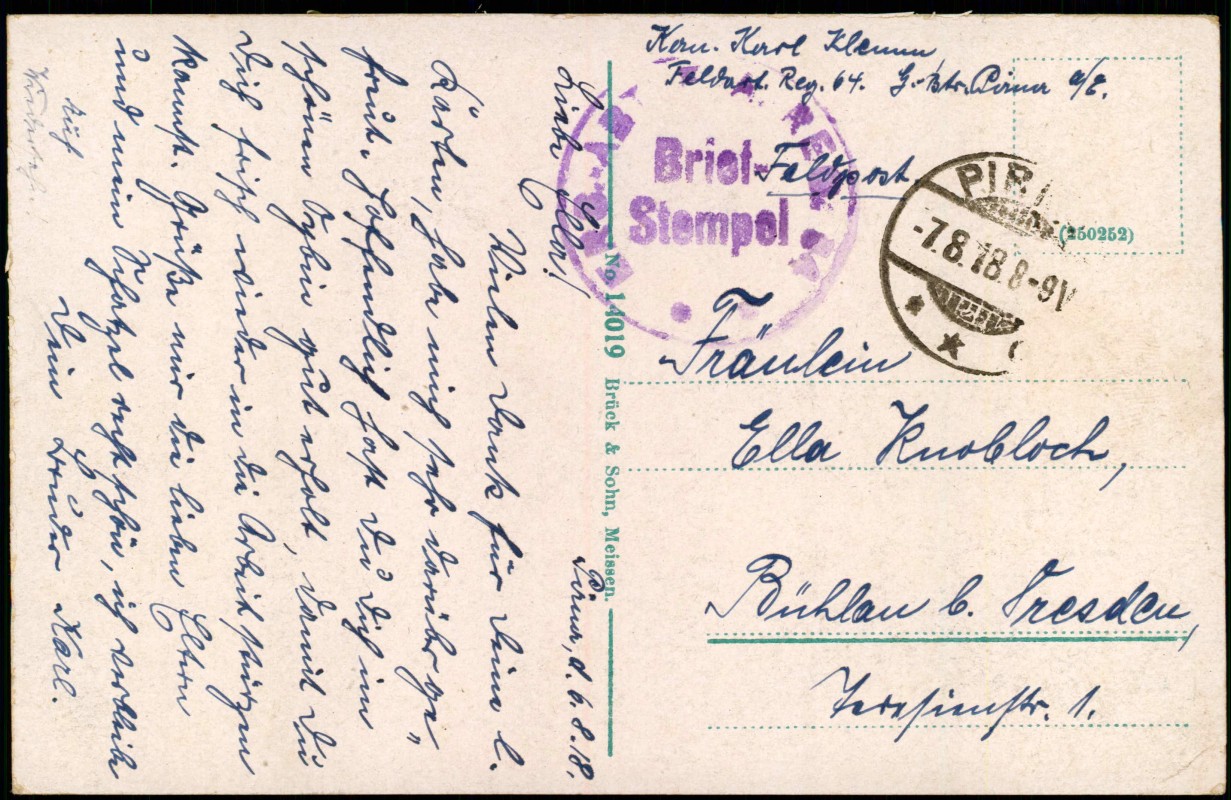 Kan. Karl Klemm
Feldart. Reg. 64. G.-Btr. Pirna a/E.
Feldpost.
Brief-
Stempel
PIR
-7.8.18.8-9V
(250252)
Fräulein
Ella Knobloch,
Bühlau b. Dresden,
Teresienstr. 1.
No 14019 Brück & Sohn, Meissen.
Pirna, d. 6.8.18.
Liebe Ella!
Vielen Dank für deine l.
Karten, habe mich sehr darüber ge-
freut. Hoffendlich hast du dich im
schönen Oybin gut erholt, damit du
dich frisch wieder in die Arbeit stürzen
kannst. Grüße mir die lieben Eltern
und meine recht schön, ich verbleibe
dein Bruder Karl.
Auf